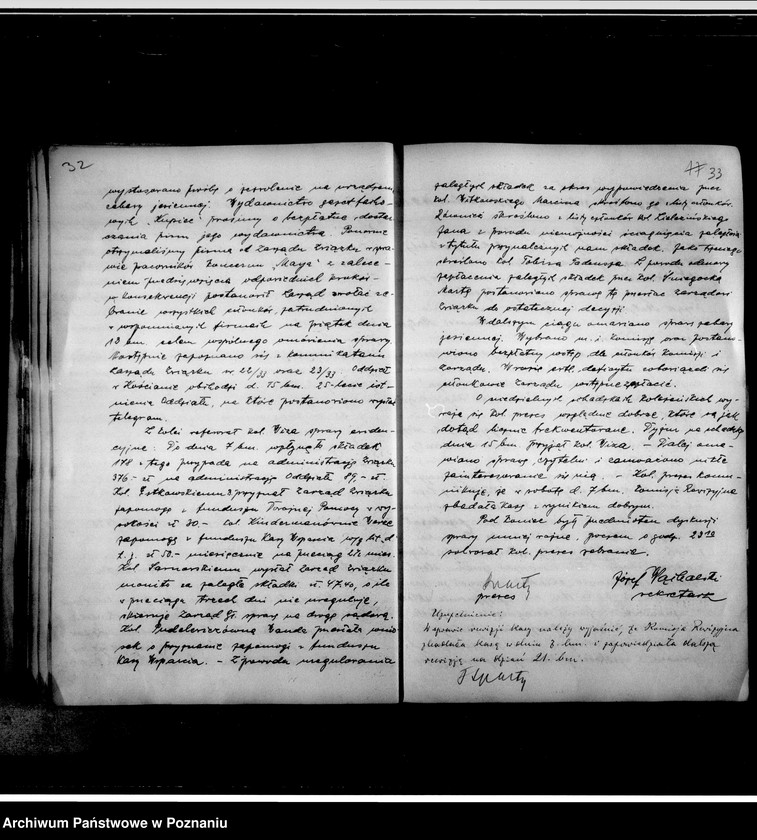 32
wystosowano prośbę o zezwolenie na urządzenie
zabawy jesiennej. Wydawnictwo gazet facho-
wych "Kupiec" prosimy o bezpłatne dostar-
czanie pism jego wydawnictwa. Ponowne
otrzymaliśmy pismo od Zarządu Związku w spra-
wie pracowników koncernu "Maya" z zalece-
niem przedsięwzięcia odpowiednich kroków -
w konsekwencji postanowił Zarząd zwołać ze-
branie wszystkich członków, zatrudnionych
w wspomnianych firmach na piątek dnia
13 bm. celem wspólnego omówienia sprawy.
Następnie zapoznano się z komunikatami
Zarządu Związku nr 22/33 oraz 23/33. Oddział
w Kościanie obchodzi d. 15 bm. 25-lecie ist-
nienia Oddziału, na które postanowiono wysłać
telegram.
Z kolei referował kol. Wiza sprawy ewiden-
cyjne: Do dnia 7 bm. wpłynęło składek
178 z tego przypada na administrację Związku
376 - zł na administrację Oddziału 89,- zł.
Kol. przyznał Zarząd Związku
zapomogę z funduszu Doraźnej Pomocy w wy-
sokości zł 30.- kol. Kindermanównie
zapomogę z funduszu Kasy Wsparcia
t.j. zł 50.- miesięcznie na przeciąg mies.
Kol. Sarnowskiemu wysłał Zarząd Związku
monit o zaległe składki zł. 47.40, o ile
w przeciągu trzech dni nie ureguluje,
skieruje Zarząd Gł. sprawę na drogę sądową.
Kol. Wanda wnio-
sek o przyznanie zapomogi z funduszu
Kasy Wsparcia. - Z powodu uregulowania
33
zaległych składek za okres wypowiedzenia przez
kol. Witkowskiego Marcina skreślono go z listy członków.
Również skreślono z listy członków kol. Zielezińskiego
Jana z powodu niemożności ściągnięcia zaległości
z tytułu przynależnych nam składek. Jako
skreślono kol. Tobisza Tadeusza. Z powodu odmowy
zapłacenia zaległych składek przez kol.
Martę postanowiono sprawę tę przesłać Zarządowi
Związku do ostatecznej decyzji.
W dalszym ciągu omawiano sprawę zabawy
jesiennej. Wybrano m.i. Komisję oraz postano-
wiono bezpłatny wstęp dla członków Komisji i
Zarządu. W razie ewtl. deficytu zobowiązali się
członkowie Zarządu wstępne zapłacić.
O niedzielnych schadzkach koleżeńskich wy-
raża się kol. prezes względnie dobrze, które są jak
dotąd licznie frekwentowane. Dyżur na schadzkę
dnia 15 bm. przyjął kol. Wiza. - Dalej oma-
wiano sprawę czytelni i zauważono nikłe
zainteresowanie się nią. - Kol. prezes komu-
nikuje, że w sobotę d. 7 bm. Komisja Rewizyjna
zbadała kasę z wynikiem dobrym.
Pod koniec były przedmiotem dyskusji
sprawy mniej ważne, poczem o godz. 23 10
solwował kol. prezes zebranie.
prezes
Józef
sekretarz
Uzupełnienie:
W sprawie rewizji kasy należy wyjaśnić, że Komisja Rewizyjna
zbadała kasę w dniu 7. bm. i zapowiedziała dalszą
rewizję na dzień 21. bm.
Archiwum Państwowe w Poznaniu